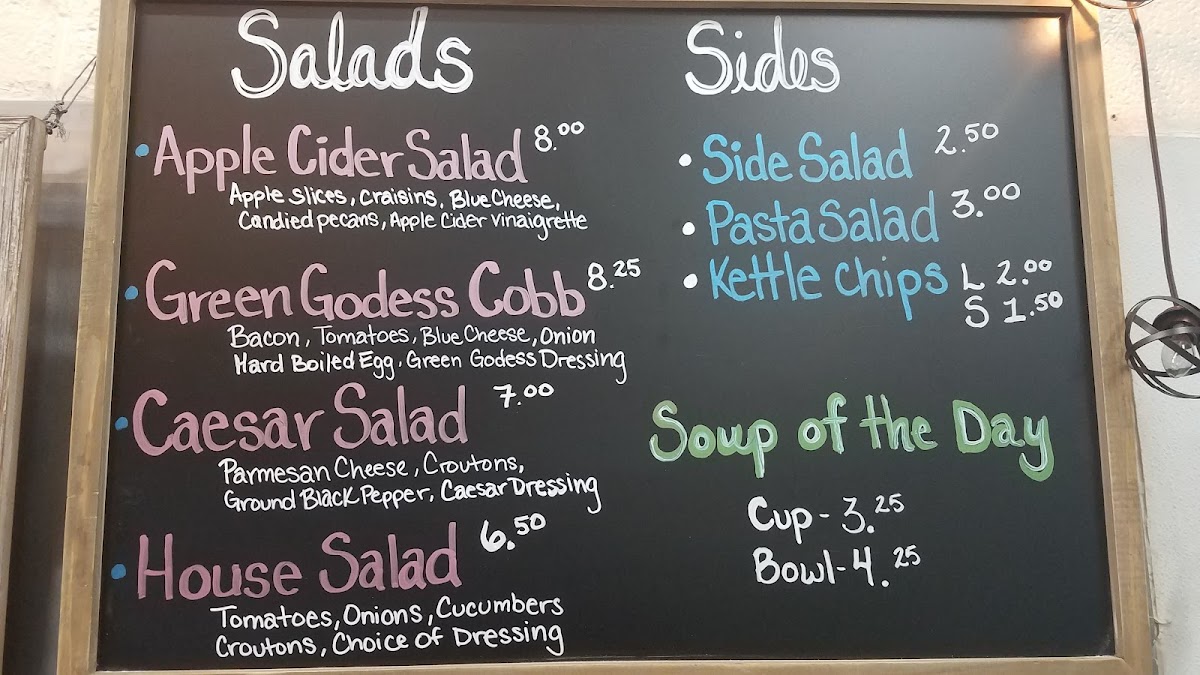 Salads
• Apple Cider Salad 8.00
Apple slices, craisins, Blue Cheese,
Candied pecans, Apple Cider Vinaigrette
• Green Godess Cobb 8.25
Bacon, Tomatoes, Blue Cheese, Onion
Hard Boiled Egg, Green Godess Dressing
• Caesar Salad 7.00
Parmesan Cheese, Croutons,
Ground Black Pepper, Caesar Dressing
• House Salad 6.50
Tomatoes, Onions, Cucumbers
Croutons, Choice of Dressing
Sides
• Side Salad 2.50
• Pasta Salad 3.00
• Kettle Chips L 2.00
S 1.50
Soup of the Day
Cup - 3.25
Bowl - 4.25